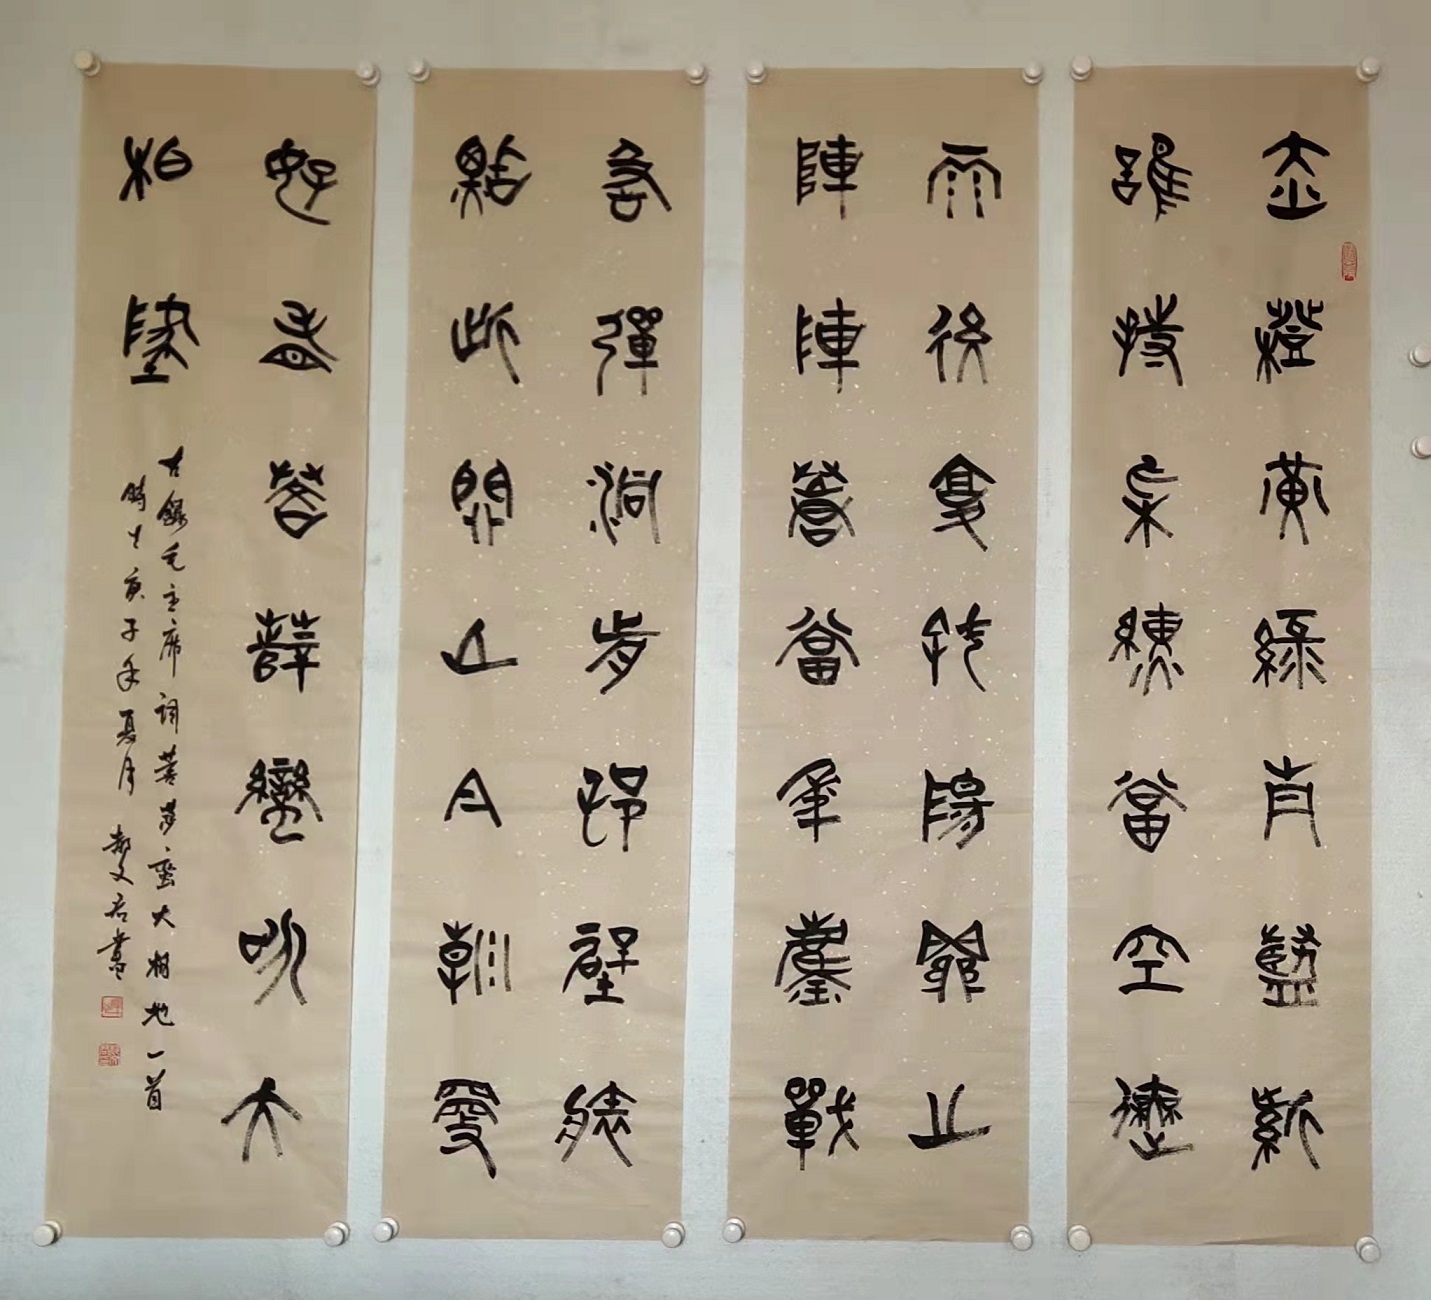 赤橙黃綠青藍紫
誰持采練當空舞
雨後复斜陽關山
陣陣蒼當年鏖戰
急彈洞前邨壁裝
點此関山今朝更
好看菩薩蠻咏大
柏墬
右錄毛主席詞菩薩蛮大柏地一首
時于庚子年夏月 文書